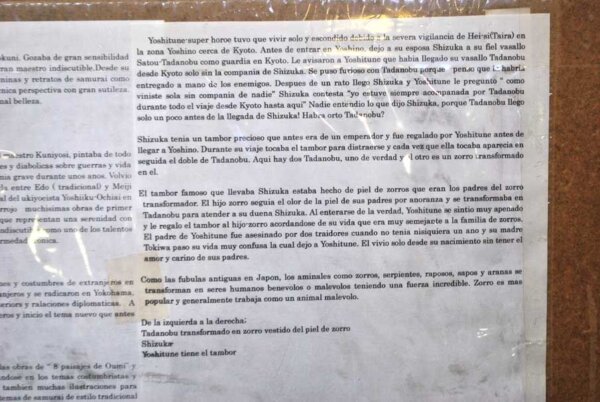 okuni. Gozaba de gran sensibilidad
ran maestro indiscutible.Desde su
ninas y retratos de samurai como
nica perspectiva con gran sutileza.
nal belleza.
maestro Kuniyosi, pintaba de todo
es y diabolicas sobre guerras y vida
nia grave durante unos anos. Volvio
da entre Edo ( tradicional ) y Meiji
al del ukiyoeista Yoshiku·Ochiai en
rrojo muchisimas obras de primer
que representan una serenidad con
ndiscutiblemente como uno de los talentos
rmedad cronica.
nes y costumbres de extranjeros en
anjeros y se radicaron en Yokohama,
eriores y ralaciones diplomaticas. A
ros y inicio el tema nuevo que antes
as obras de " 8 paisajes de Oumi" y
ndose en los temas costumbristas y
tambien muchas ilustraciones para
temas de samurai de estilo tradicional
Yoshitune·super horoe tuvo que vivir solo y escondido debido a la severa vigilancia de Hei·si(Taira) en
la zona Yoshino cerca de Kyoto. Antes de entrar en Yoshino, dejo a su esposa Shizuka a su fiel vasallo
Satou·Tadanobu como guardia en Kyoto. Le avisaron a Yoshitune que habia llegado su vasallo Tadanobu
desde Kyoto solo sin la compania de Shizuka. Se puso furioso con Tadanobu porque penso que la habria
entregado a mano de los enemigos. Despues de un rato llego Shizuka y Yoshitune le pregunto " como
viniste sola sin compania de nadie" Shizuka contesta "yo estuve siempre acompanada por Tadanobu
durante todo el viaje desde Kyoto hasta aqui" Nadie entendio lo que dijo Shizuka, porque Tadanobu llego
solo un poco antes de la llegada de Shizuka! Habra orto Tadanobu?
Shizuka tenia un tambor precioso que antes era de un emperador y fue regalado por Yoshitune antes de
llegar a Yoshino. Durante su viaje tocaba el tambor para distraerse y cada vez que ella tocaba aparecia en
seguida el doble de Tadanobu. Aqui hay dos Tadanobu, uno de verdad y el otro es un zorro transformado
en el.
El tambor famoso que llevaba Shizuka estaba hecho de piel de zorros que eran los padres del zorro
transformador. El hijo zorro seguia el olor de la piel de sus padres por anoranza y se transformaba en
Tadanobu para atender a su duena Shizuka. Al enterarse de la verdad, Yoshitune se sintio muy apenado
y le regalo el tambor al hijo·zorro acordandose de su vida que era muy semejarte a la familia de zorros.
El padre de Yoshitune fue asesinado por dos traidores cuando no tenia nisiquiera un ano y su madre
Tokiwa paso su vida muy confusa la cual dejo a Yoshitune. El vivio solo desde su nacimiento sin tener el
amor y carino de sus padres.
Como las fubulas antiguas en Japon, los aminales como zorros, serpientes, raposos, sapos y aranas se
transforman en seres humanos benevolos o malevolos teniendo una fuerza incredible. Zorro es mas
popular y generalmente trabaja como un animal malevolo.
De la izquierda a la derecha:
Tadanobu transformado en zorro vestido del piel de zorro
Shizuka
Yoshitune tiene el tambor